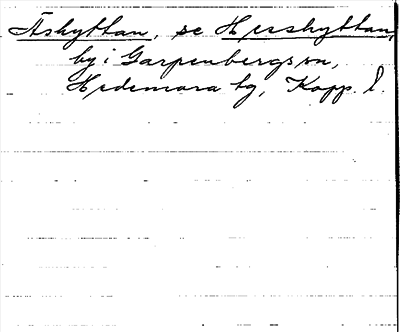 Åshyttan, se Hesshyttan,
by i Garpenbergs sn,
Hedemora tg, Kopp. l.